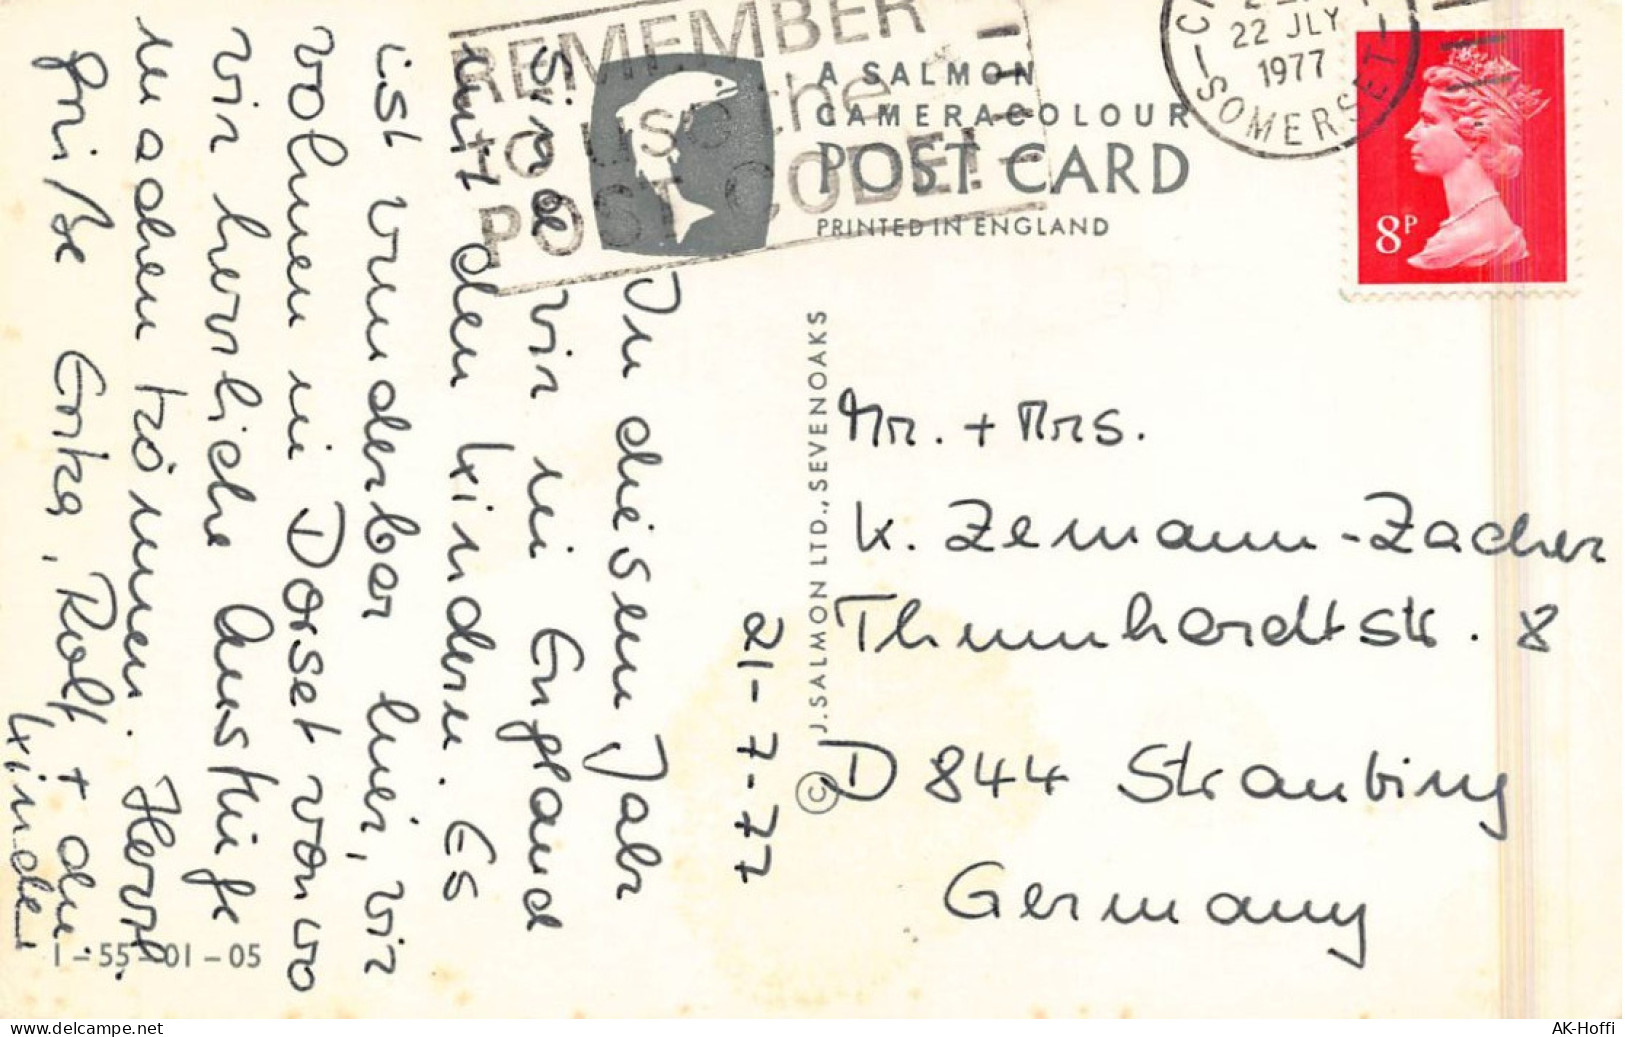 REMEMBER
to use the
POST CODE!
A SALMON
CAMERACOLOUR
POST CARD
PRINTED IN ENGLAND
22 JLY
1977
SOMERSET
8P
21-7-77
In diesem Jahr
sind wir in England
mit den Kindern. Es
ist wunderbar hier, wir
wohnen in Dorset von wo
wir herrliche Ausflüge
machen können. Herzl.
Grüße Erika, Rolf + die
Kinder
© J. SALMON LTD., SEVENOAKS
Mr. + Mrs.
K. Zemann-Zacher
Thumhardtstr. 8
D 844 Straubing
Germany
1-55-01-05
www.delcampe.net
AK-Hoffi